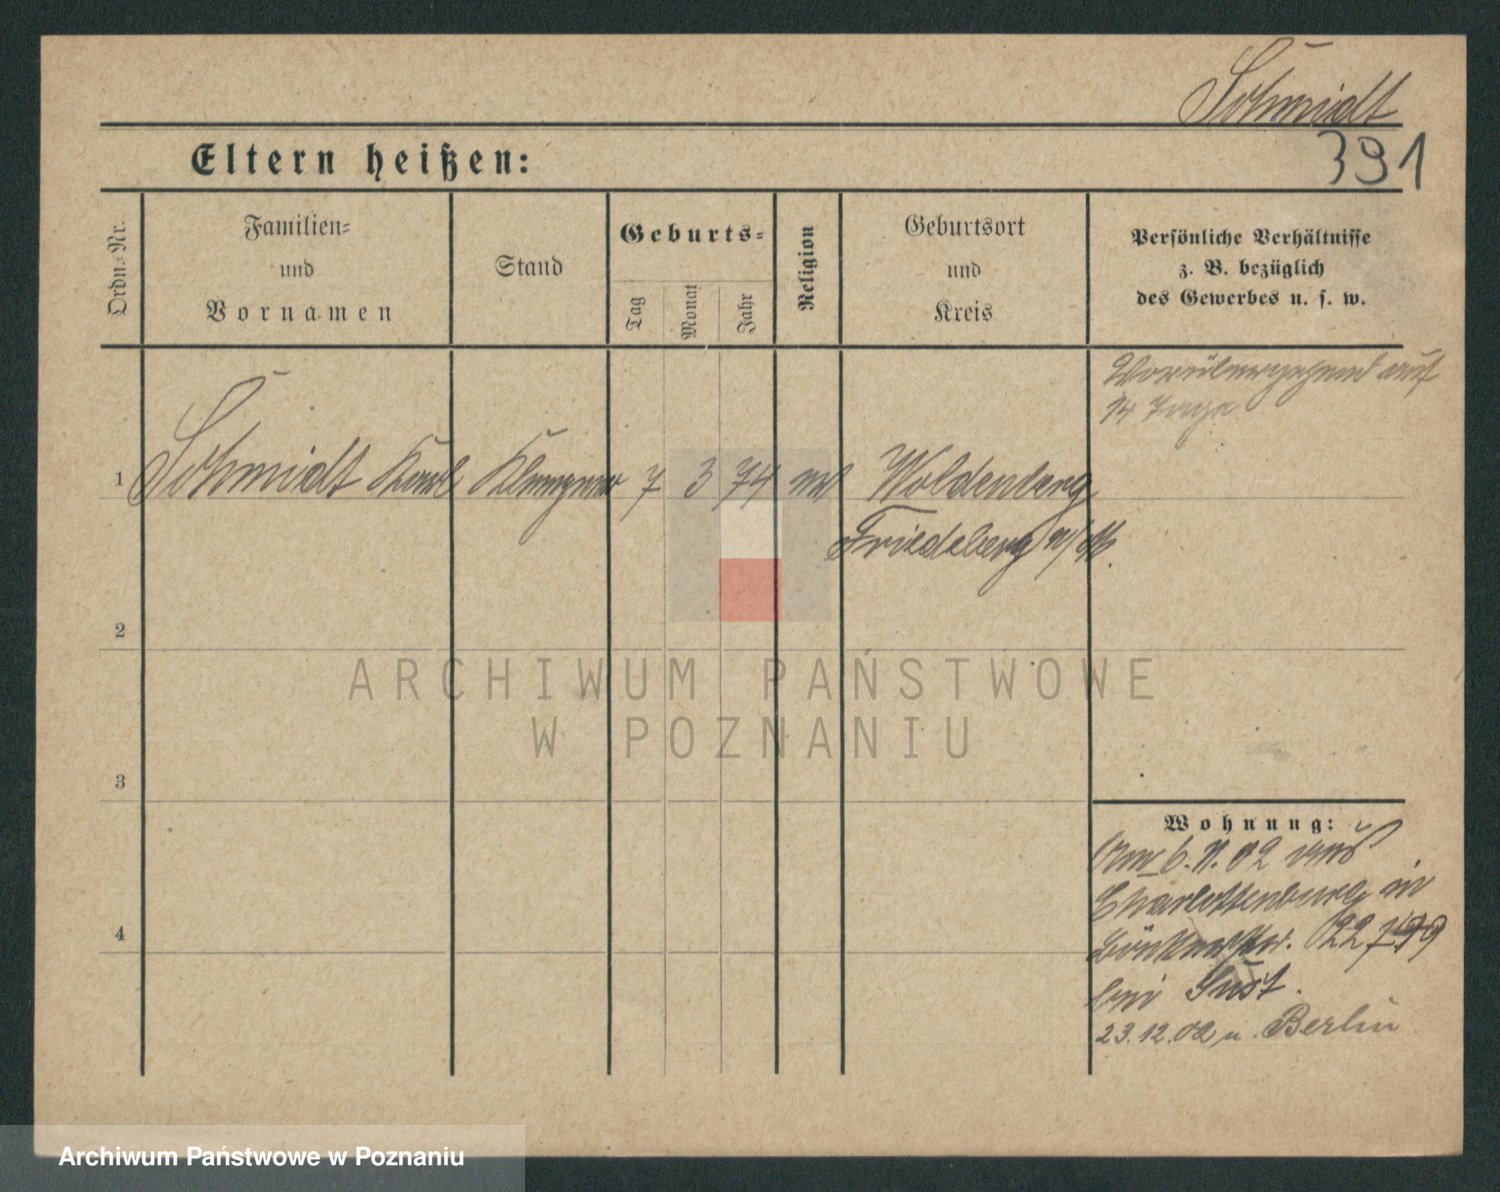 Schmidt
391
Eltern heißen:
Ordn.-Nr.
Familien-
und
Vornamen
Stand
Geburts-
Tag
Monat
Jahr
Religion
Geburtsort
und
Kreis
Persönliche Verhältnisse
z. B. bezüglich
des Gewerbes u. s. w.
Vorübergehend auf
14 Tage
1 Schmidt Karl Klempner 7 3 74 Woldenberg
Friedeberg N/M.
2
3
4
ARCHIWUM PAŃSTWOWE
W POZNANIU
Wohnung:
Am 6. 11. 02 aus
Charlottenburg in
22
bei Just.
23.12.02 n. Berlin
Archiwum Państwowe w Poznaniu